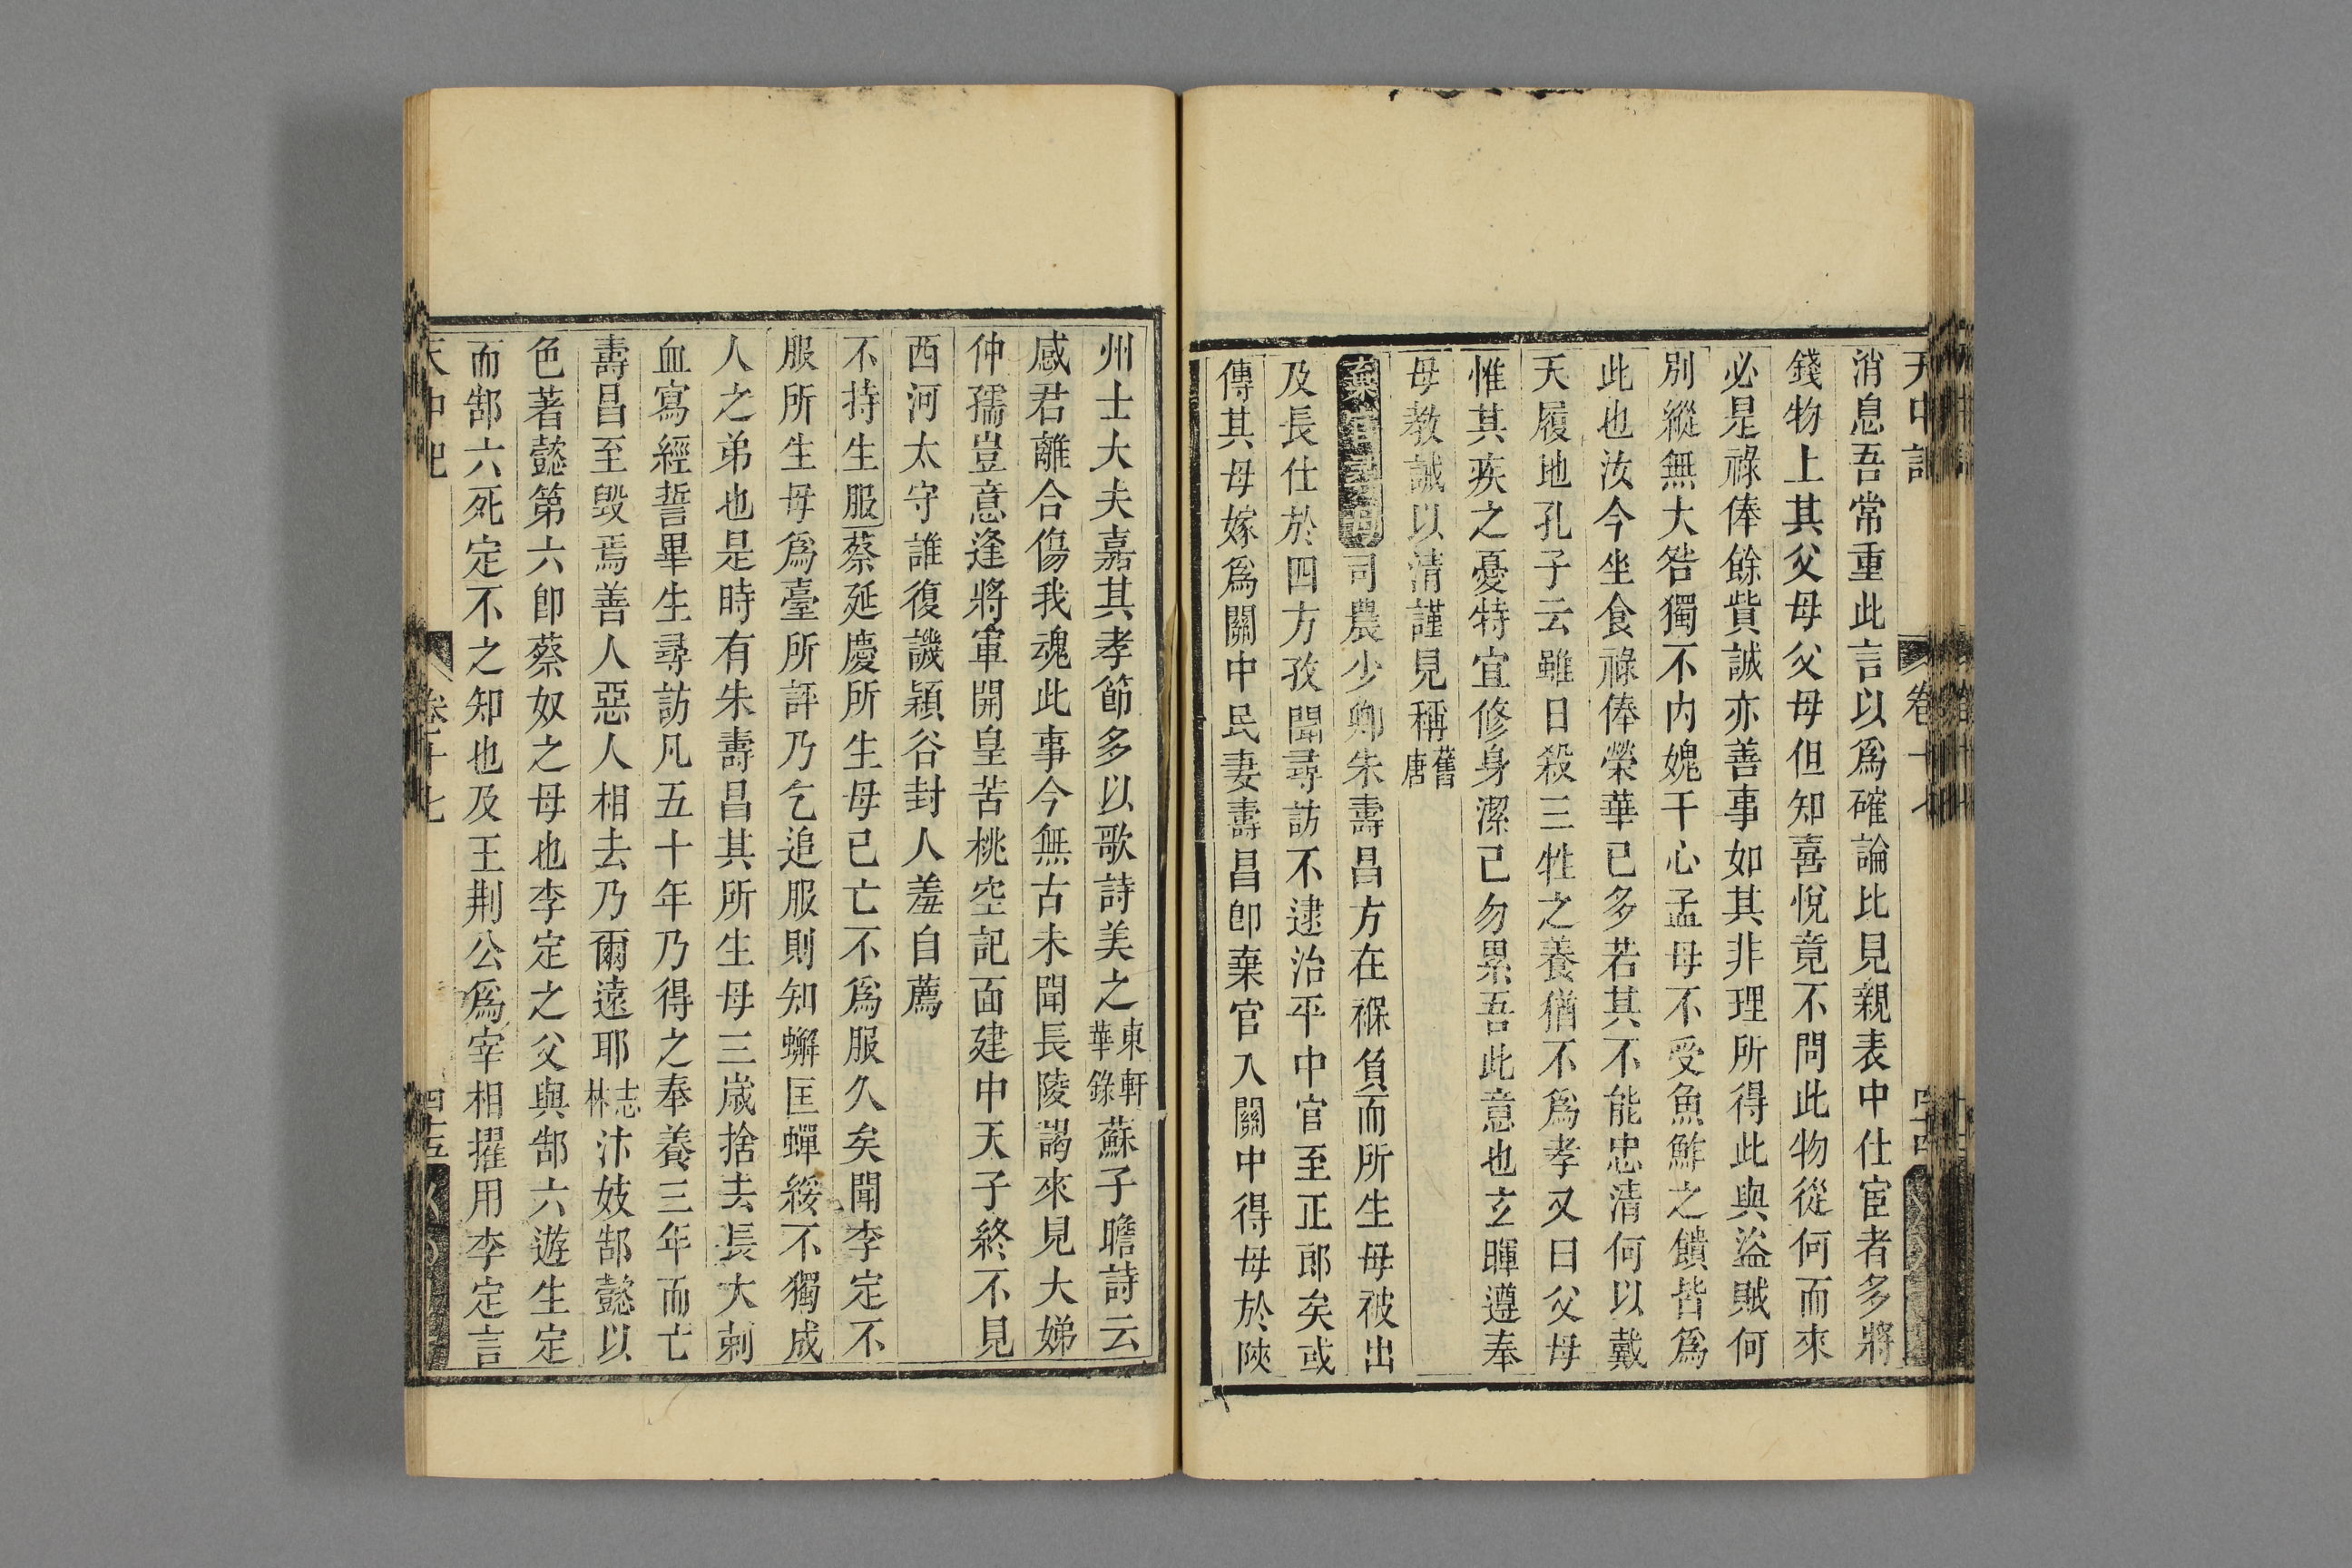 天中記 卷十七
消息吾常重此言以爲確論比見親表中仕宦者多將
錢物上其父母父母但知喜悅竟不問此物從何而來
必是祿俸餘貲誠亦善事如其非理所得此與盜賊何
別縱無大咎獨不内媿干心孟母不受魚鮓之饋皆爲
此也汝今坐食祿俸榮華已多若其不能忠清何以戴
天履地孔子云雖日殺三牲之養猶不爲孝又曰父母
惟其疾之憂特宜修身潔己勿累吾此意也玄暉遵奉
母教誡以清謹見稱舊唐
棄官尋母司農少卿朱壽昌方在褓負而所生母被出
及長仕於四方孜聞尋訪不逮治平中官至正郎矣或
傳其母嫁爲關中民妻壽昌卽棄官入關中得母於陝
州士大夫嘉其孝節多以歌詩美之東軒華錄蘇子瞻詩云
感君離合傷我魂此事今無古未聞長陵謁來見大娣
仲孺豈意逢將軍開皇苦桃空記面建中天子終不見
西河太守誰復譏潁谷封人羞自薦
不持生服蔡延慶所生母已亡不爲服久矣聞李定不
服所生母爲臺所評乃乞追服則知蠏匡蟬綏不獨成
人之弟也是時有朱壽昌其所生母三歲捨去長大刺
血寫經誓畢生尋訪凡五十年乃得之奉養三年而亡
壽昌至毁焉善人惡人相去乃爾遠耶志林汴妓郜懿以
色著懿第六卽蔡奴之母也李定之父與郜六遊生定
而郜六死定不之知也及王荆公爲宰相擢用李定言
天中記 卷十七 四五